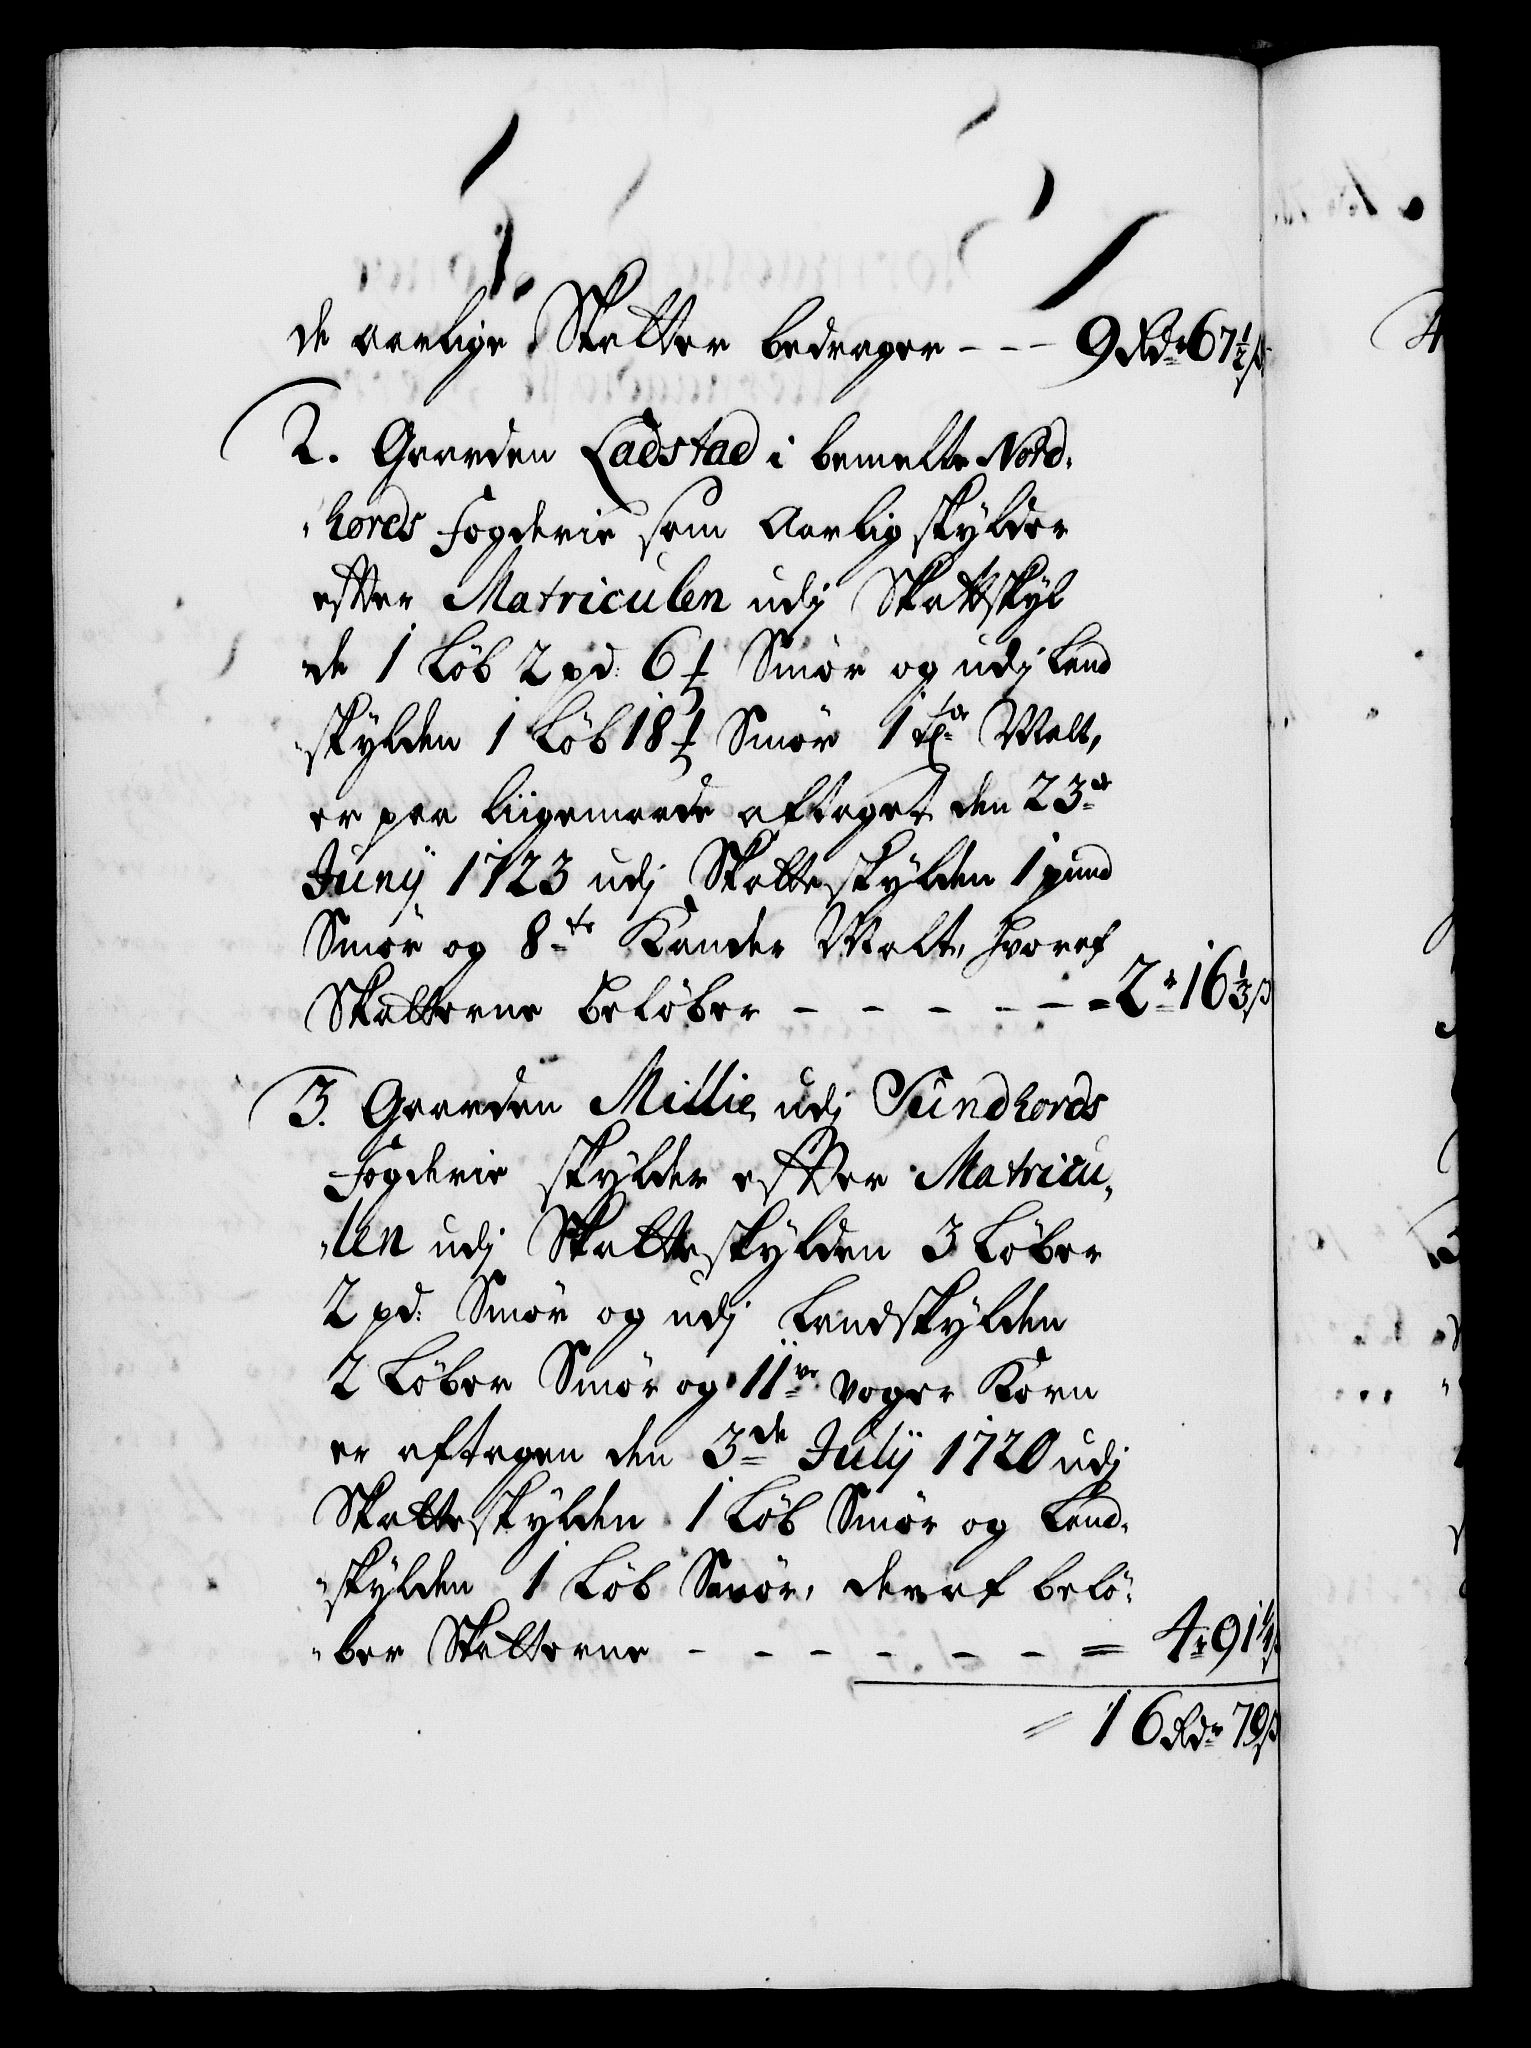 de aarlige Skatter bedrager - - - 9 Rdr 67½ ß
2. Gaarden Ladstad i bemelte Nord-
hords Fogderie som Aarlig skylder
efter Matriculen udj Skattskyl
de 1 Løb 2 pd: 6 ℔ Smør og udj Land
skylden 1 Løb 18 ℔ Smør 1 Malt,
er paa liigemaade aftaget den 23de
Junij 1723 udj Skatteskylden 1 pund
Smør og 8te Kander Malt, hvoraf
Skatterne beløber - - - - - = 2 r 16⅓ ß
3. Gaarden Millie udj Sundhords
Fogderie skylder efter Matricu-
len udj Skatteskylden 3 Løber
2 pd: Smør og udj Landskylden
2 Løber Smør og 11ve voger Korn
er aftagen den 3de Julij 1720 udj
Skatteskylden 1 Løb Smør og Land-
skylden 1 Løb Smør, deraf belø-
ber Skatterne - - - - - - = 4 r 91¼ ß
= 16 Rdr 79 ß